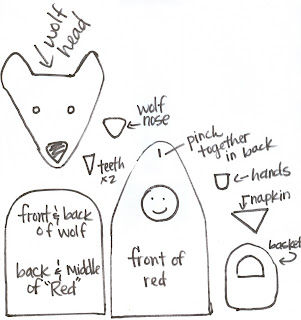 wolf
head
wolf
nose
teeth
x2
pinch
together
in back
hands
napkin
basket
front & back
of wolf
back & Middle
of "Red"
front of
red